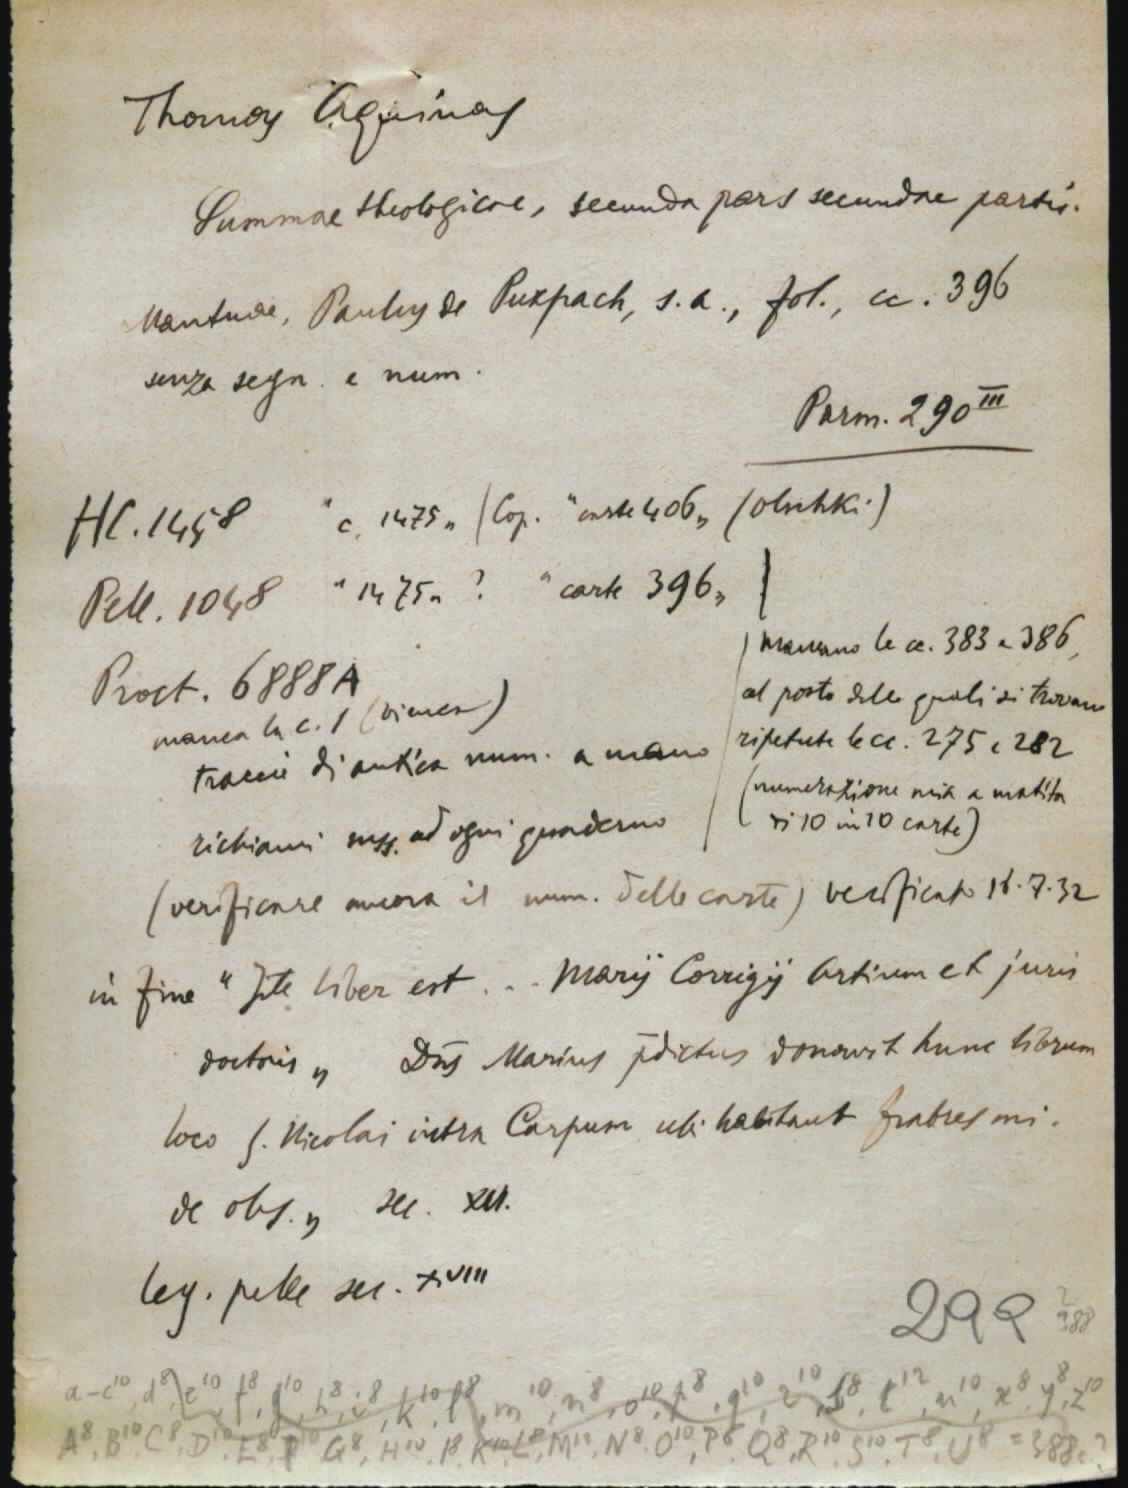 Thomas Aquinas
Summae theologicae, secunda pars secundae partis.
Mantuae, Paulus de Puzpach, s.a., fol., cc. 396
senza segn. e num.
Parm. 290 III
HC. 1458 "c. 1475" (Cop. "carte 406" (Olschki)
Pell. 1048 "1475" ? "carte 396"
Proct. 6888A
manca la c. 1 (bianca)
traccie di antica num. a mano
richiami mss. ad ogni quaderno
mancano le cc. 383 e 386,
al posto delle quali si trovano
ripetute le cc. 275 e 282
(numerazione mia a matita
di 10 in 10 carte)
(verificare ancora il num. delle carte) verificato 16.7.32
in fine "Iste liber est ... Marij Corrigij artium et juris
doctoris" Dns Marius pdictus donavit hunc librum
loco S. Nicolai intra Carpum ubi habitant fratres mi.
de obs." sec.
leg. pelle sec. XVIII
299
a-c10, d8, e10, f8, g10, h8, i8, k10, l8, m10, n8, o10, p8, q10, r10, s8, t12, u10, x8, y8, z10
A8, B10 C8, D10, E8, F10 G8, H10, I8, K10, L8, M10, N8, O10, P8, Q8, R10, S10, T8, U8 = 388 c?